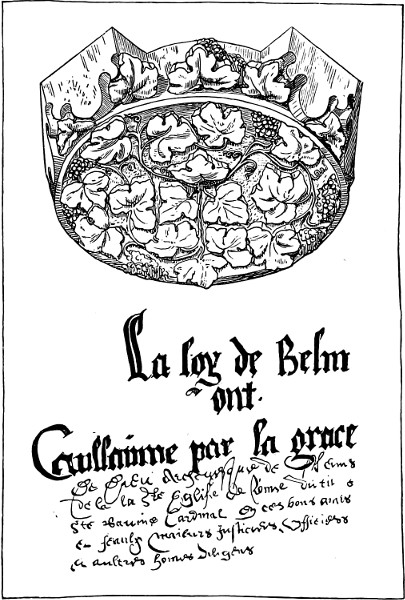 La loy de Belm
ont.
Guillaume par la grace
De Dieu Archevesque de Rheims
de la Ste Eglise de Rome du
Ste Cardinal ces bons amis
feaulx maieurs Justiciers Officiers
aultres hommes diligens